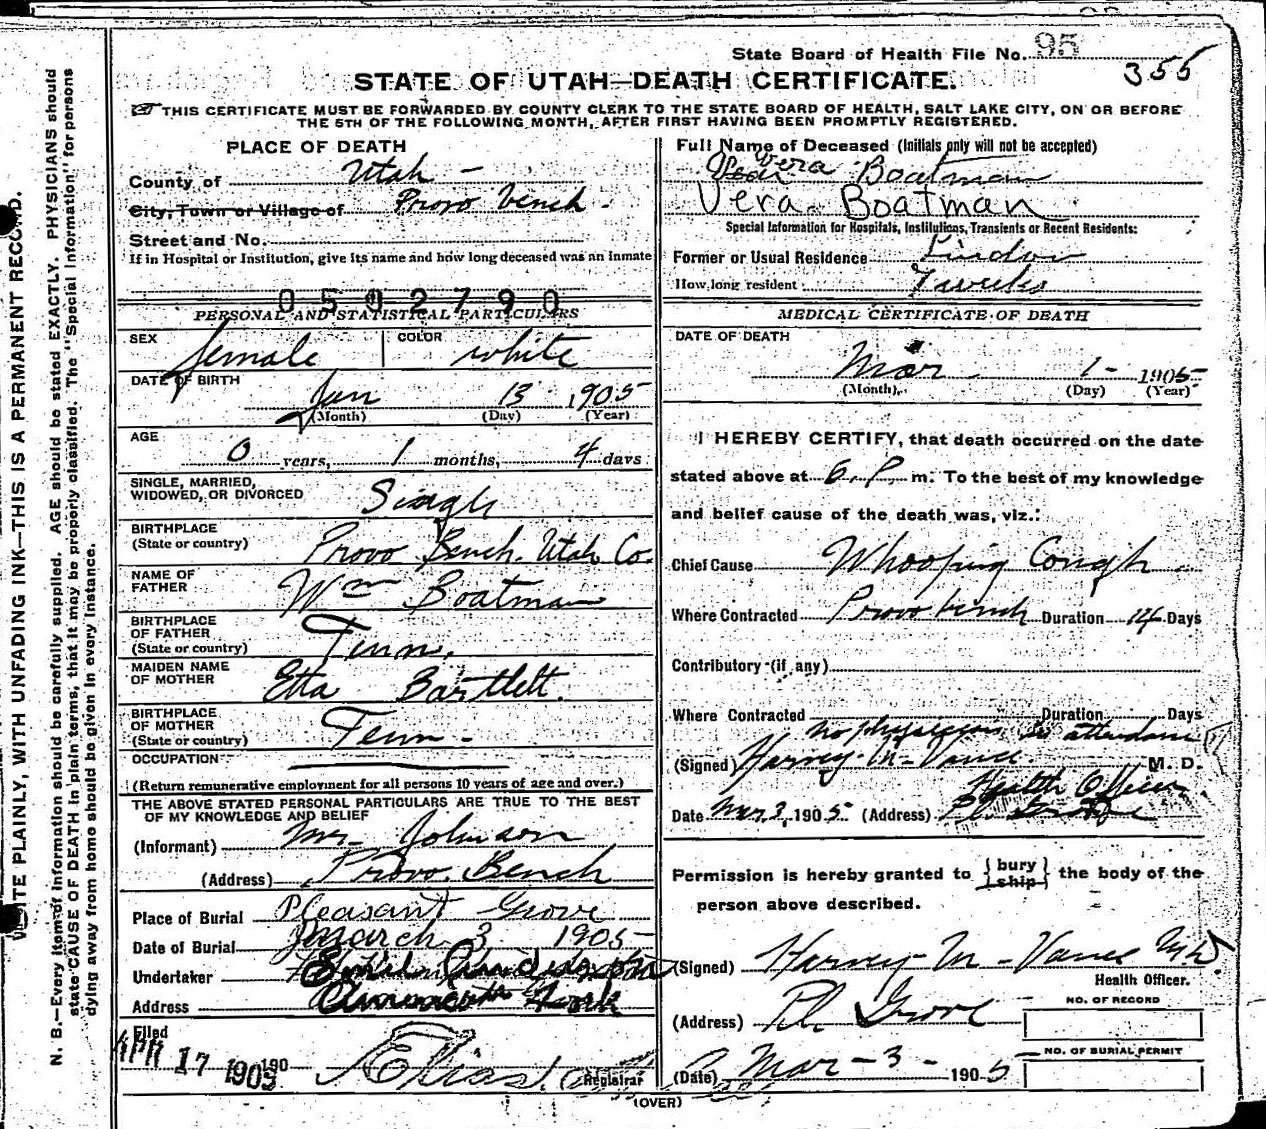 State Board of Health File No. 95
355
STATE OF UTAH—DEATH CERTIFICATE.
THIS CERTIFICATE MUST BE FORWARDED BY COUNTY CLERK TO THE STATE BOARD OF HEALTH, SALT LAKE CITY, ON OR BEFORE
THE 5TH OF THE FOLLOWING MONTH, AFTER FIRST HAVING BEEN PROMPTLY REGISTERED.
WRITE PLAINLY, WITH UNFADING INK—THIS IS A PERMANENT RECORD.
N. B.—Every item of information should be carefully supplied. AGE should be stated EXACTLY. PHYSICIANS should
state CAUSE OF DEATH in plain terms, that it may be properly classified. The "Special Information" for persons
dying away from home should be given in every instance.
PLACE OF DEATH
County of Utah -
City, Town or Village of Provo Bench.
Street and No.
If in Hospital or Institution, give its name and how long deceased was an inmate
0502790
PERSONAL AND STATISTICAL PARTICULARS
SEX female COLOR white
DATE OF BIRTH Jan 13 1905
(Month) (Day) (Year)
AGE
0 years, 1 months, 4 days
SINGLE, MARRIED,
WIDOWED, OR DIVORCED Single
BIRTHPLACE
(State or country) Provo Bench. Utah Co.
NAME OF
FATHER Wm Boatman
BIRTHPLACE
OF FATHER
(State or country) Tenn.
MAIDEN NAME
OF MOTHER Etta Bartlett
BIRTHPLACE
OF MOTHER
(State or country) Tenn -
OCCUPATION
(Return remunerative employment for all persons 10 years of age and over.)
THE ABOVE STATED PERSONAL PARTICULARS ARE TRUE TO THE BEST
OF MY KNOWLEDGE AND BELIEF
(Informant) Mr. Johnson
(Address) Provo Bench
Place of Burial Pleasant Grove
Date of Burial March 3 1905
Undertaker
Address American Fork
Filed
APR 17 1905 190
Elias
Registrar
Full Name of Deceased (Initials only will not be accepted)
Vera Boatman
Vera Boatman
Special Information for Hospitals, Institutions, Transients or Recent Residents:
Former or Usual Residence Lindon
How long resident 7 weeks
MEDICAL CERTIFICATE OF DEATH
DATE OF DEATH
Mar 1- 1905
(Month) (Day) (Year)
I HEREBY CERTIFY, that death occurred on the date
stated above at 6. P. m. To the best of my knowledge
and belief cause of the death was, viz.:
Chief Cause Whooping Cough
Where Contracted Provo bench Duration 14 Days
Contributory (if any)
Where Contracted Duration Days
no physician in attendance
(Signed) Harvey M- Vance M. D.
Health Officer
Date Mar 3, 1905 (Address)
Permission is hereby granted to {bury
ship} the body of the
person above described.
(Signed) Harvey M- Vance MD.
Health Officer.
(Address) Pl. Grove
NO. OF RECORD
NO. OF BURIAL PERMIT
(Date) Mar - 3 - 1905
(OVER)